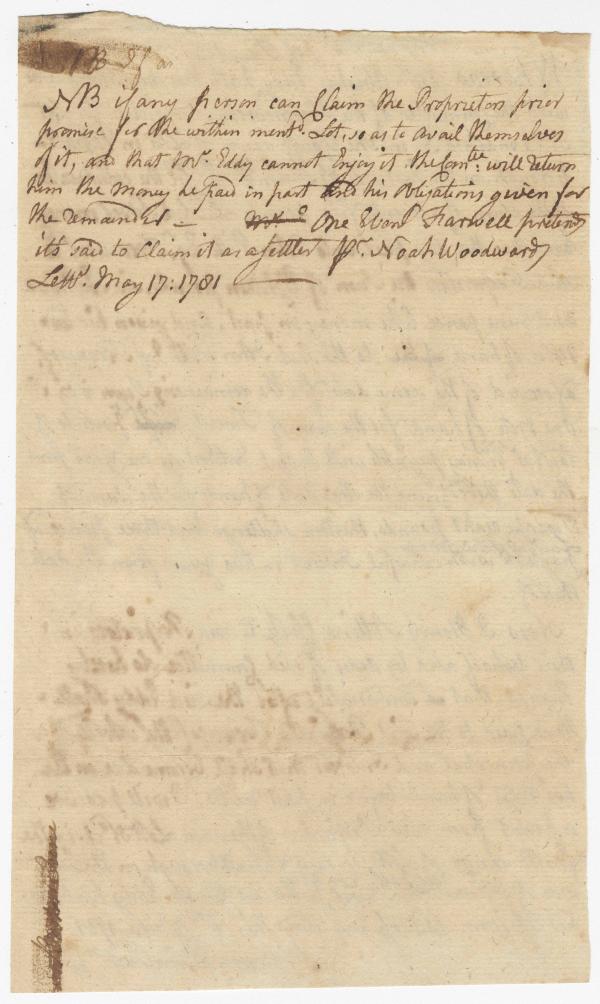 NB if a
NB if any person can Claim the Proprietors prior
promise for the within mentd. Lot, so as to avail themselves
of it, and that Mr. Eddy cannot Enjoy it the Comtee. will return
him the money he paid in part and his obligations given for
the remainder — One Ebenr. Farwell pretends
it's said to Claim it as a settler pr. Noah Woodward
Lettr. May 17: 1781